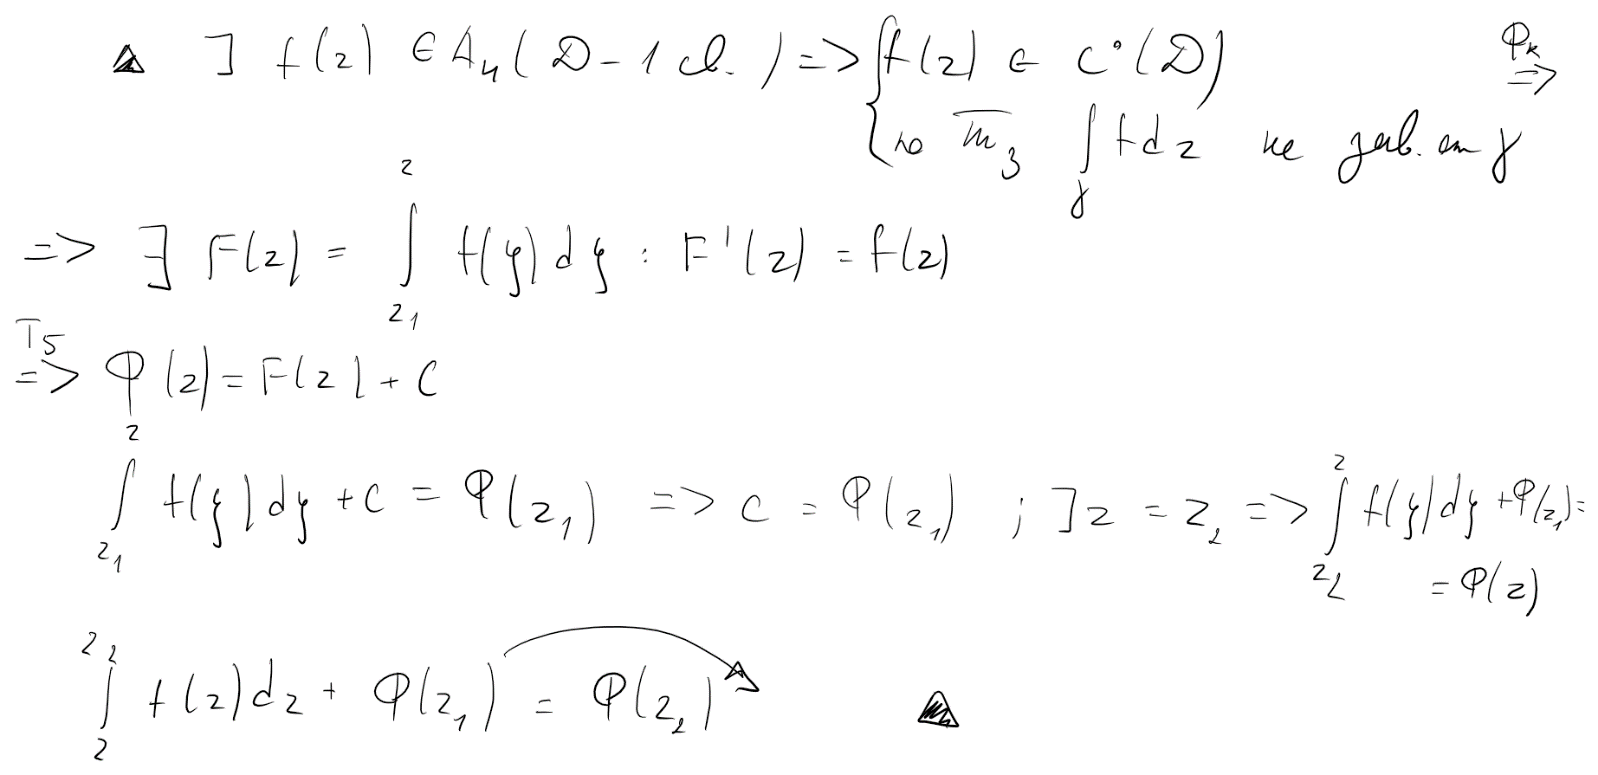 ▲ ] f(z) ∈ Aн(D - 1 св.) => { f(z) ∈ C°(D) Фк =>
по Тm 3 ∫_γ f dz не зав. от γ
=> ∃ F(z) = ∫_{z_1}^{z} f(ξ) dξ : F'(z) = f(z)
T5 => Φ(z) = F(z) + C
∫_{z_1}^{z} f(ξ) dξ + C = Φ(z_1) => C = Φ(z_1) ; ] z = z_2 => ∫_{z_2}^{z} f(ξ) dξ + Φ(z_1) =
= Φ(z)
∫_{z}^{z_2} f(z) dz + Φ(z_1) = Φ(z_2) ▲